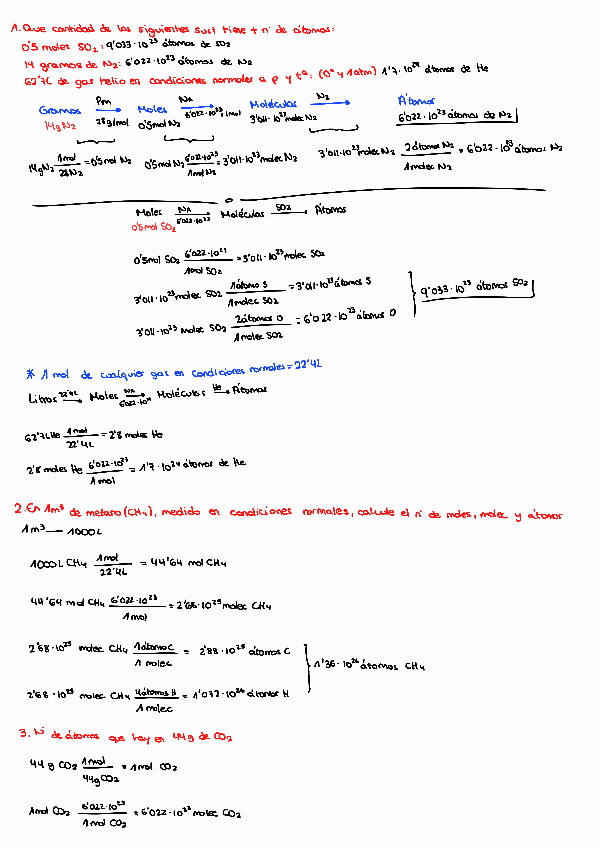 1. Que cantidad de las siguientes sust tiene + nº de átomos:
0'5 moles SO2: 9'033·10²³ átomos de SO2
14 gramos de N2: 6'022·10²³ átomos de N2
62'7L de gas helio en condiciones normales de p y tª: (0º y 1atm) 1'7·10²⁴ átomos de He
Gramos Pm Moles NA Moléculas N2 Átomos
14g N2 28g/mol 0'5mol N2 6'022·10²³ 1mol 3'011·10²³ molec N2 6'022·10²³ átomos de N2
14g N2 1mol/28N2 = 0'5mol N2 0'5mol N2 6'022·10²³/1mol N2 = 3'011·10²³ molec N2 3'011·10²³ molec N2 2átomos N2/1molec N2 = 6'022·10²³ átomos N2
Moles NA Moléculas SO2 Átomos
0'5mol SO2 6'022·10²³
0'5mol SO2 6'022·10²³/1mol SO2 = 3'011·10²³ molec SO2
3'011·10²³ molec SO2 1átomo S/1molec SO2 = 3'011·10²³ átomos S
9'033·10²³ átomos SO2
3'011·10²³ molec SO2 2átomos O/1molec SO2 = 6'022·10²³ átomos O
* 1 mol de cualquier gas en condiciones normales = 22'4L
Litros 22'4L Moles NA 6'022·10²³ Moléculas He Átomos
62'7L He 1mol/22'4L = 2'8 moles He
2'8 moles He 6'022·10²³/1mol = 1'7·10²⁴ átomos de He
2. En 1m³ de metano (CH4), medido en condiciones normales, calcule el nº de moles, molec y átomos
1m³ — 1000L
1000L CH4 1mol/22'4L = 44'64 mol CH4
44'64 mol CH4 6'022·10²³/1mol = 2'68·10²⁵ molec CH4
2'68·10²⁵ molec CH4 1átomo C/1 molec = 2'88·10²⁵ átomos C
1'36·10²⁶ átomos CH4
2'68·10²⁵ molec CH4 4átomos H/1 molec = 1'072·10²⁶ átomos H
3. Nº de átomos que hay en 44g de CO2
44g CO2 1mol/44g CO2 = 1mol CO2
1mol CO2 6'022·10²³/1mol CO2 = 6'022·10²³ molec CO2